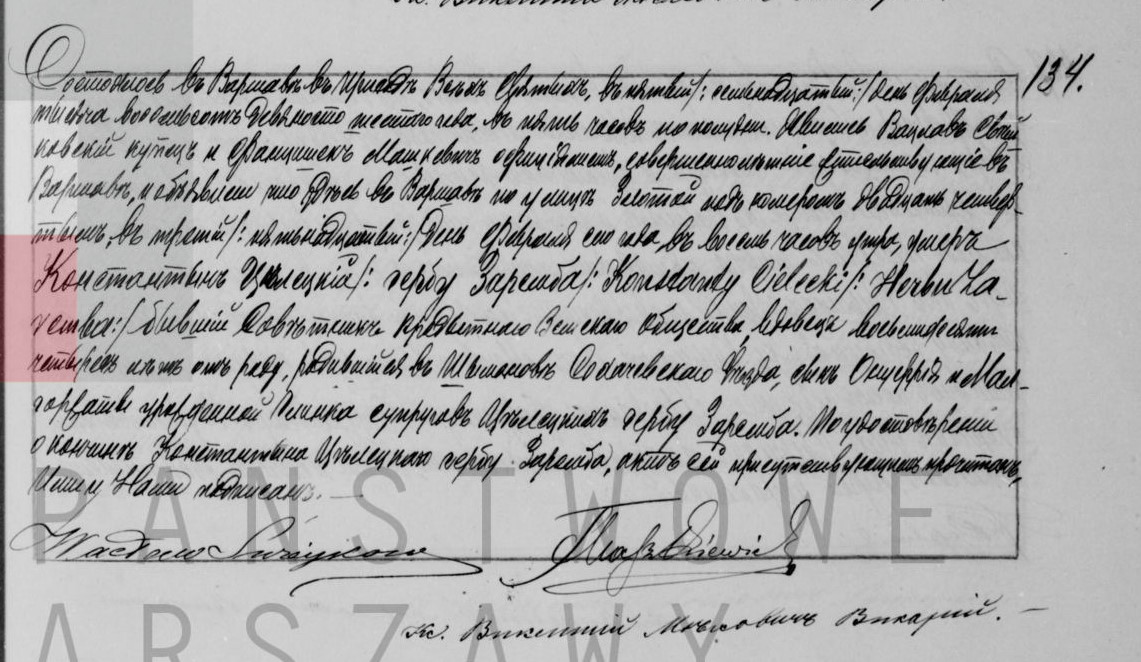 134.
Состоялось въ Варшавѣ въ приходѣ Всѣхъ Святыхъ, въ пятый /: семьнадцатый :/ день Февраля
тысяча восемьсотъ девяносто шестого года, въ пять часовъ по полудни. Явились Вацлавъ
ковскій купецъ и Францишекъ Машкевичъ оффиціалистъ, совершеннолѣтніе жительствующіе въ
Варшавѣ, и объявили что здѣсь въ Варшавѣ по улицѣ Золотой подъ номеромъ двадцать четвер-
тымъ, въ третій /: пятьнадцатый :/ день Февраля сего года, въ восемь часовъ утра, умеръ
Константинъ Цѣлецкій /: гербу Заремба /: Konstanty Cielecki /: Herbu Za-
remba :/ бывшій Совѣтникъ Кредитнаго Земскаго Общества, вдовецъ восемьдесять
четырехъ лѣтъ отъ роду, родившійся въ Шымановѣ Сохачевскаго Уѣзда, сынъ Онуфрія и Мал-
горжаты урожденной Глинка супруговъ Цѣлецкихъ гербу Заремба. По удостовѣреніи
о кончинѣ Константина Цѣлецкаго гербу Заремба, актъ сей присутствующимъ прочитанъ,
Ими и Нами подписанъ. —
Wacław
Maszkiewicz
Кс. Викентій Викарій. —
PAŃSTWOWE
ARSZAWY